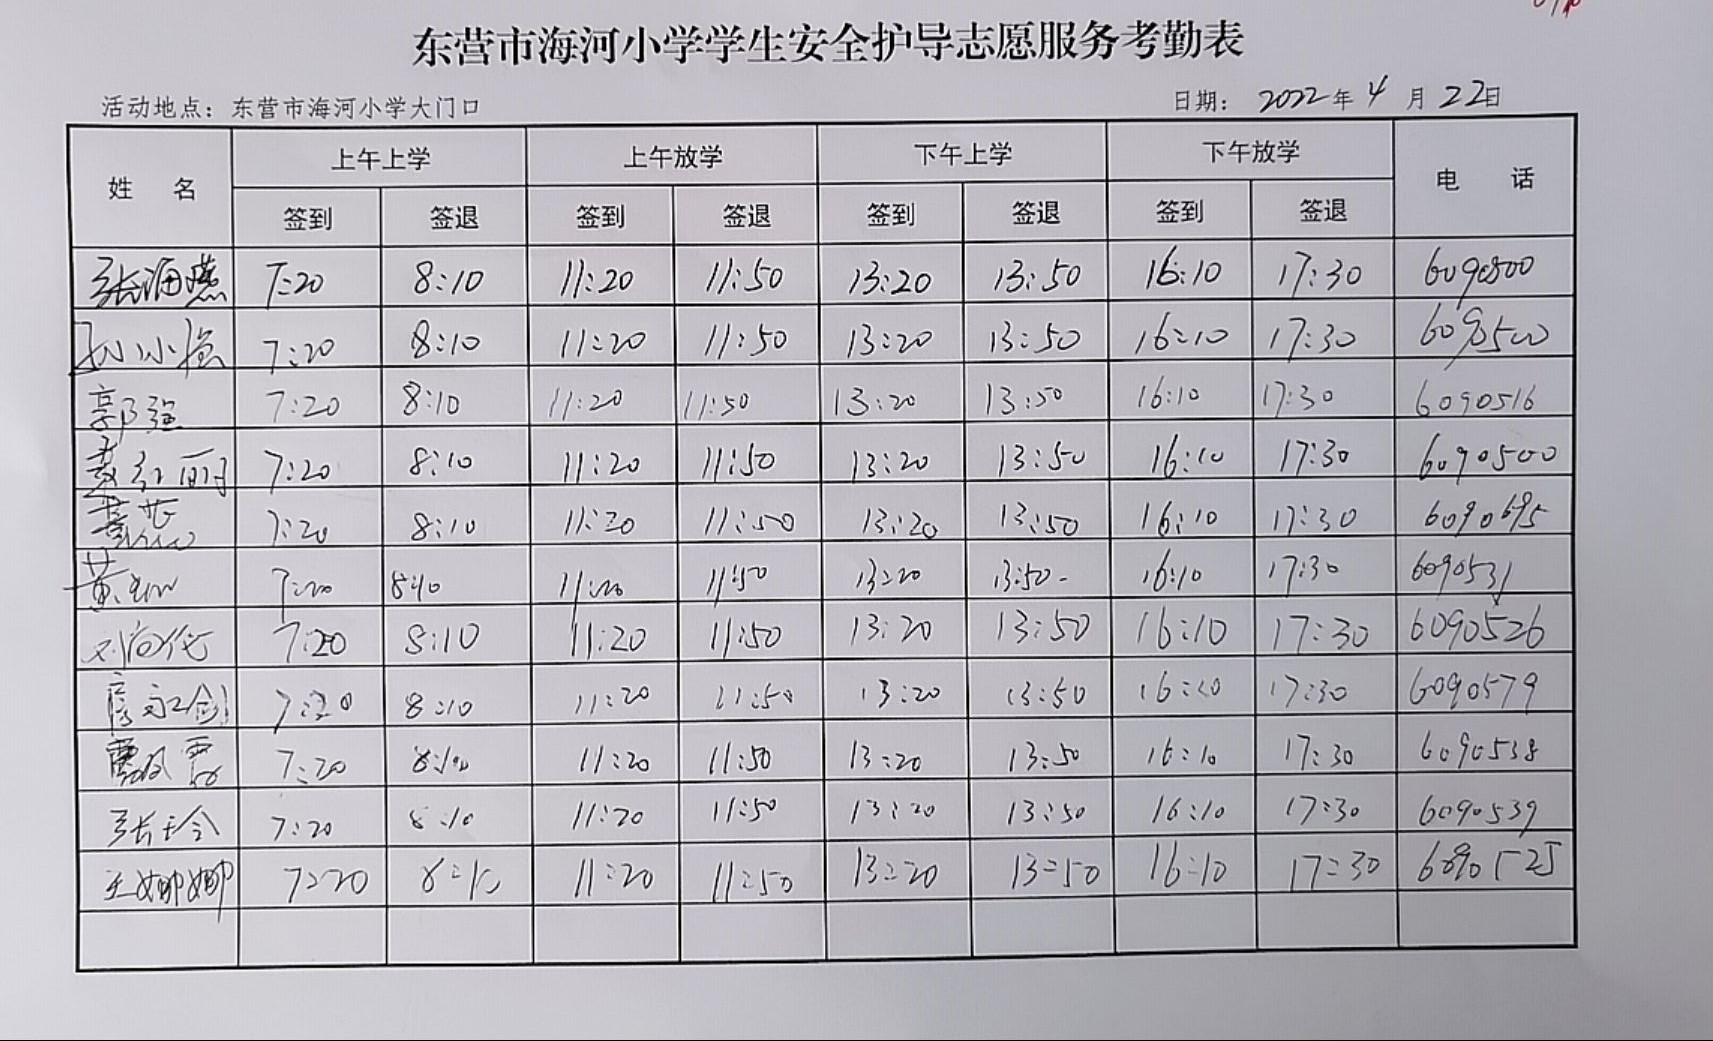 东营市海河小学学生安全护导志愿服务考勤表
活动地点：东营市海河小学大门口 日期： 2022年 4 月 22日
姓 名 上午上学 上午放学 下午上学 下午放学 电 话
签到 签退 签到 签退 签到 签退 签到 签退
张海燕 7:20 8:10 11:20 11:50 13:20 13:50 16:10 17:30 6090500
孙小 7:20 8:10 11:20 11:50 13:20 13:50 16:10 17:30 6090500
郭强 7:20 8:10 11:20 11:50 13:20 13:50 16:10 17:30 6090516
红丽 7:20 8:10 11:20 11:50 13:20 13:50 16:10 17:30 6090500
7:20 8:10 11:20 11:50 13:20 13:50 16:10 17:30 6090695
黄 7:20 8:10 11:20 11:50 13:20 13:50- 16:10 17:30 6090531
刘 7:20 8:10 11:20 11:50 13:20 13:50 16:10 17:30 6090526
7:20 8:10 11:20 11:50 13:20 13:50 16:10 17:30 6090579
7:20 8:10 11:20 11:50 13:20 13:50 16:10 17:30 6090538
张玲 7:20 8:10 11:20 11:50 13:20 13:50 16:10 17:30 6090539
王娜娜 7:20 8:10 11:20 11:50 13:20 13:50 16:10 17:30 6090525